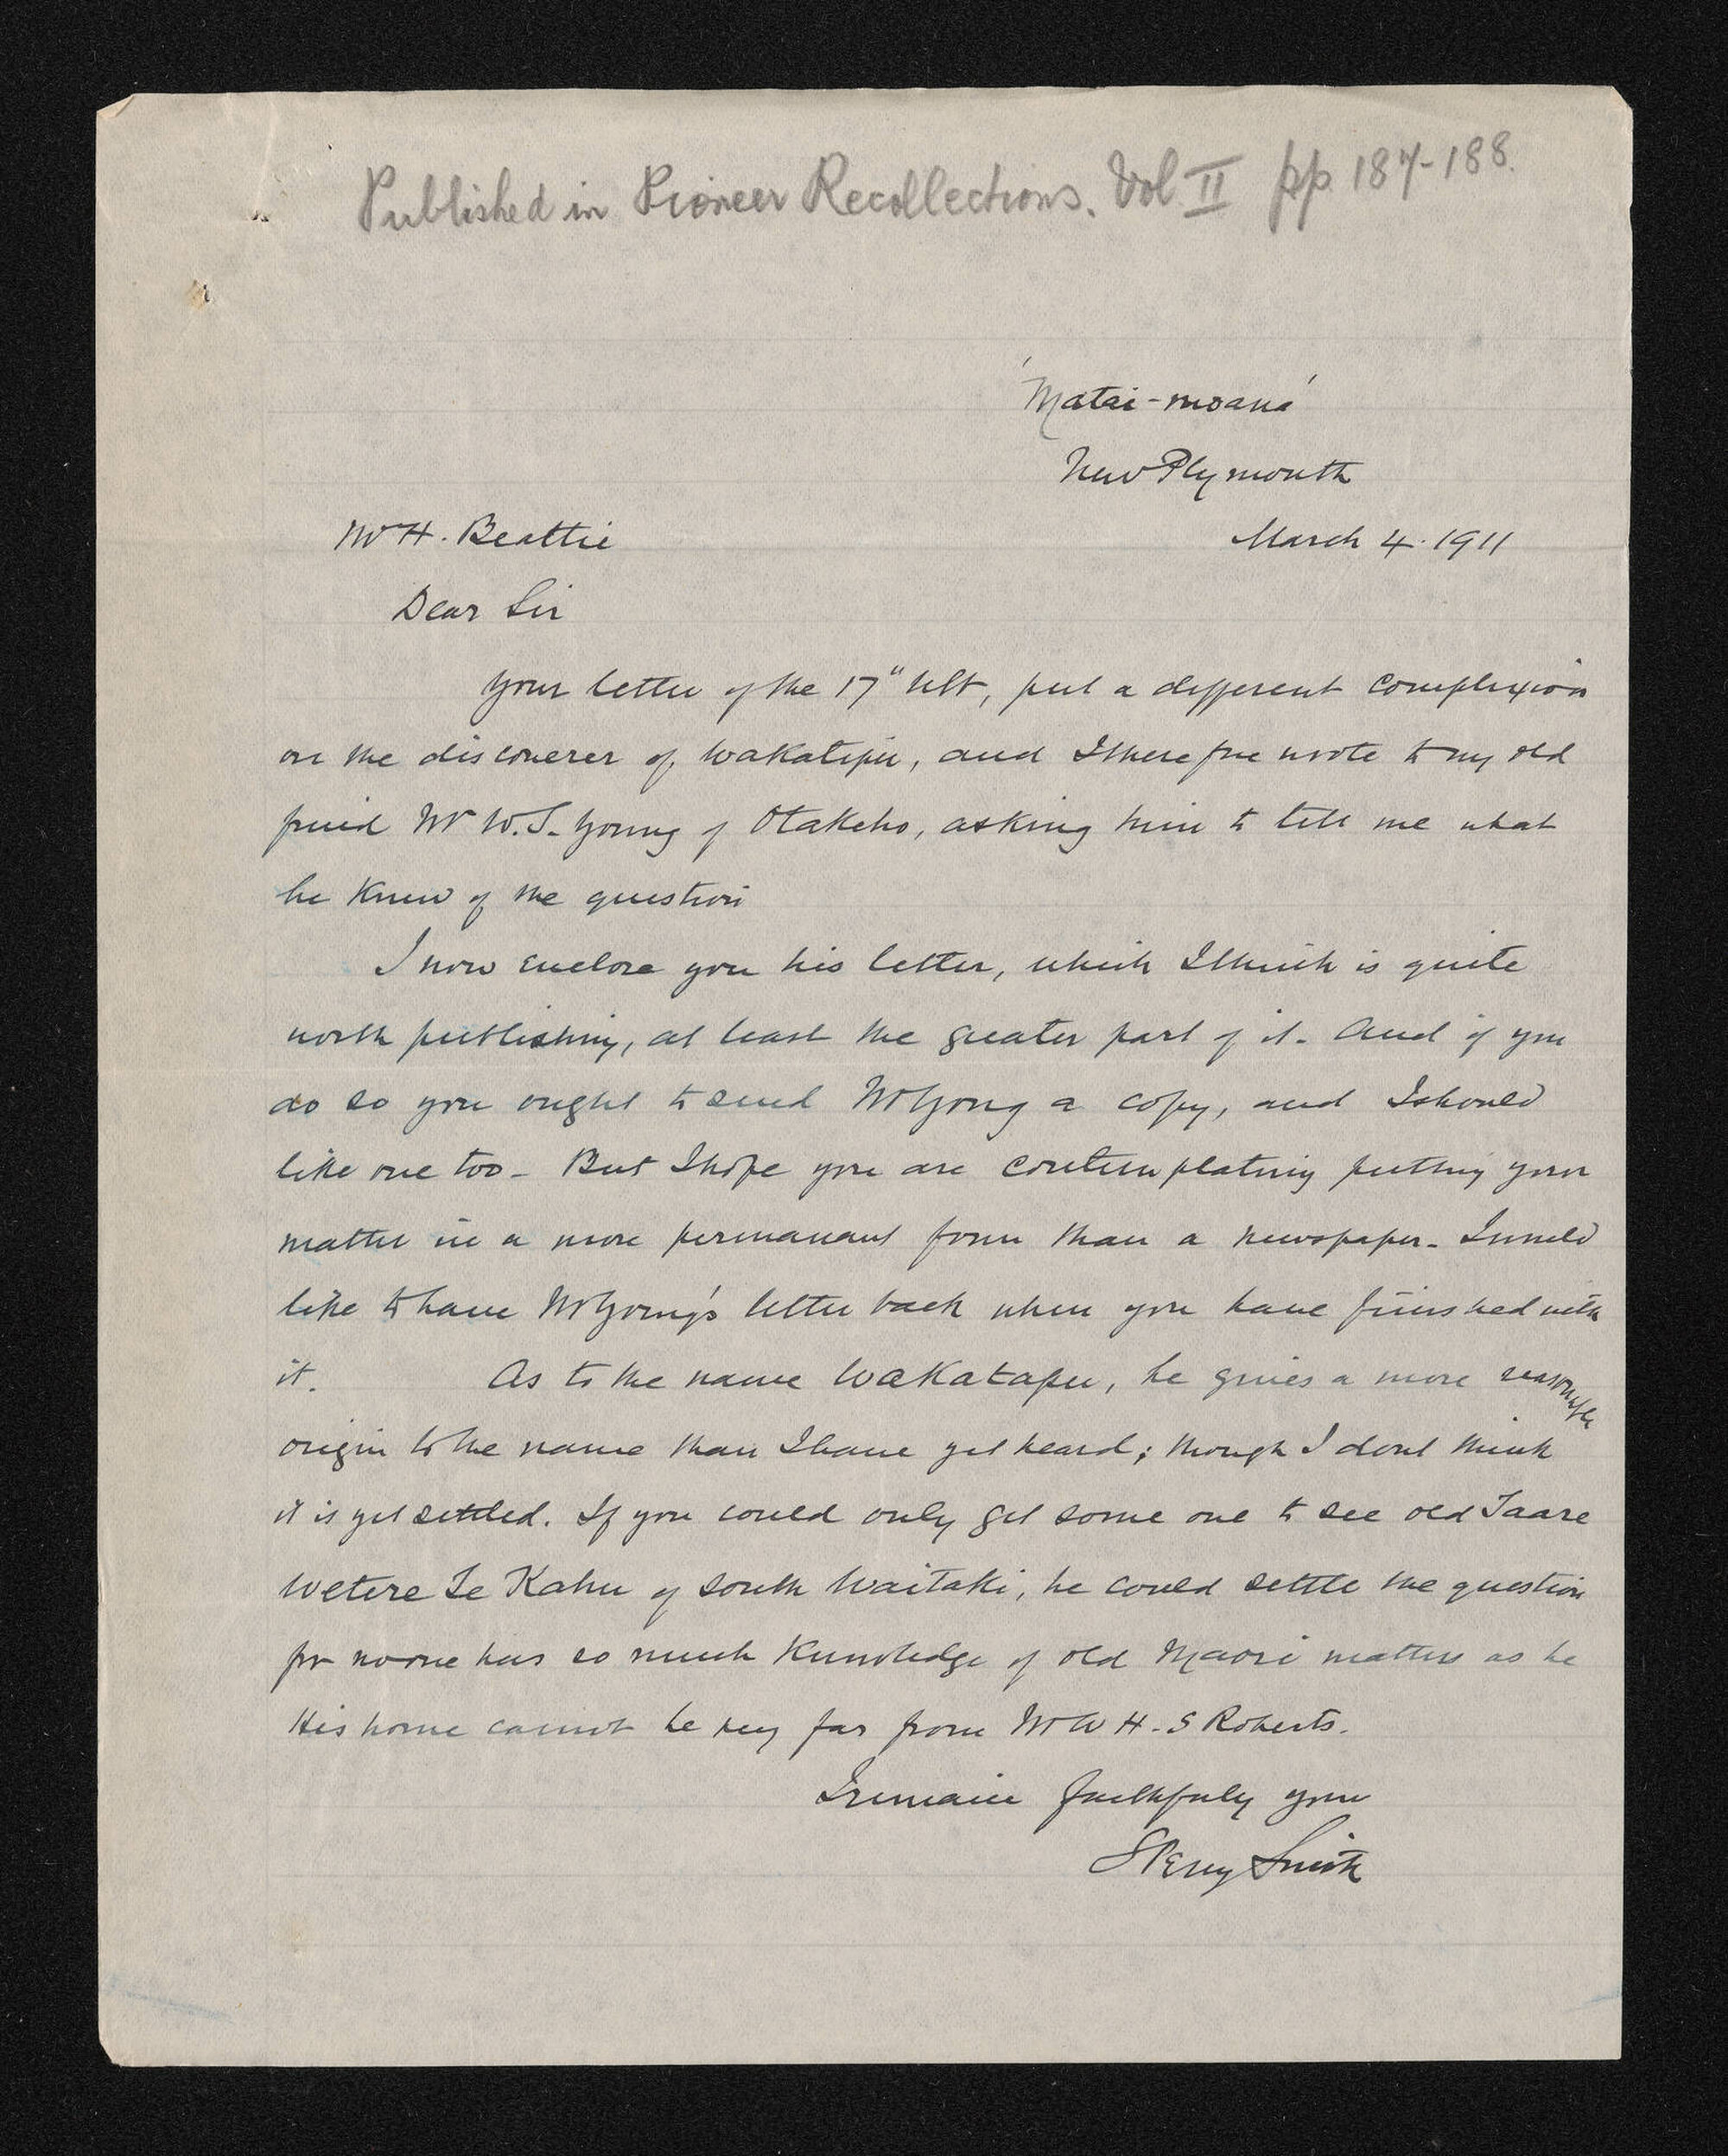 Published in Pioneer Recollections. Vol II pp 187-188.
'Matai-moana'
New Plymouth
Mr H. Beattie
March 4. 1911
Dear Sir
Your letter of the 17" ult, put a different complexion
on the discoverer of Wakatipu, and I therefore wrote to my old
friend Mr W.S. Young of Otakeho, asking him to tell me what
he knew of the question
I now enclose you his letter, which I think is quite
worth publishing, at least the greater part of it. And if you
do so you ought to send Mr Young a copy, and I should
like one too - But I hope you are contemplating putting your
matter in a more permanant form than a newspaper - I would
like to have Mr Young's letter back when you have finished with
it. As to the name Wakatapu, he gives a more reasonable
origin to the name than I have yet heard; though I dont think
it is yet settled. If you could only get some one to see old Taare
Wetere Te Kahu of South Waitaki, he could settle the question
for no one has so much knowledge of old Maori matters as he
His home cannot be very far from Mr W H. S Roberts.
I remain faithfuly yours
S Percy Smith